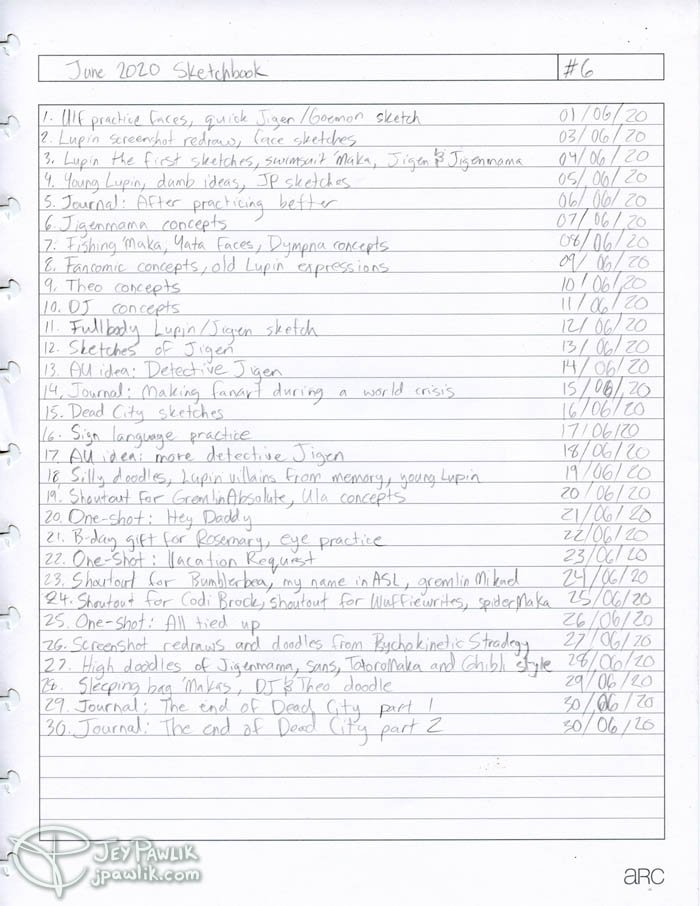 June 2020 Sketchbook #6
1. Ulf practice faces, quick Jigen/Goemon sketch 01/06/20
2. Lupin screenshot redraw, face sketches 03/06/20
3. Lupin the first sketches, swimsuit Maka, Jigen & Jigenmama 04/06/20
4. Young Lupin, dumb ideas, JP sketches 05/06/20
5. Journal: After practicing better 06/06/20
6. Jigenmama concepts 07/06/20
7. Fishing Maka, Yata Faces, Dympna concepts 08/06/20
8. Fancomic concepts, old Lupin expressions 09/06/20
9. Theo concepts 10/06/20
10. DJ concepts 11/06/20
11. Fullbody Lupin/Jigen sketch 12/06/20
12. Sketches of Jigen 13/06/20
13. AU idea: Detective Jigen 14/06/20
14. Journal: Making fanart during a world crisis 15/06/20
15. Dead City sketches 16/06/20
16. Sign language practice 17/06/20
17. AU idea: more detective Jigen 18/06/20
18. Silly doodles, Lupin villains from memory, young Lupin 19/06/20
19. Shoutout for GremlinAbsolute, Ula concepts 20/06/20
20. One-shot: Hey Daddy 21/06/20
21. B-day gift for Rosemary, eye practice 22/06/20
22. One-Shot: Vacation Request 23/06/20
23. Shoutout for Bumblerbea, my name in ASL, gremlin Mikael 24/06/20
24. Shoutout for Codi Brock, shoutout for Wuffiewrites, spiderMaka 25/06/20
25. One-shot: All tied up 26/06/20
26. Screenshot redraws and doodles from Psychokinetic Stradegy 27/06/20
27. High doodles of Jigenmama, sans, TotoroMaka and Ghibli style 28/06/20
28. Sleeping bag Makas, DJ & Theo doodle 29/06/20
29. Journal: The end of Dead City part 1 30/06/20
30. Journal: The end of Dead City part 2 30/06/20
JEY PAWLIK
jpawlik.com
ARC